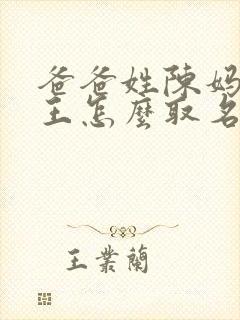 爸爸姓陳媽
王怎麼取名
王業蘭